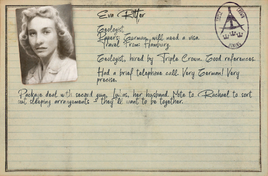 Eva Ritter
Geologist
Papers: German, will need a visa.
Travel From: Hamburg
Geologist, hired by Triple Crown. Good references.
Had a brief telephone call. Very German! Very
precise.
Package deal with second guy, Lewis, her husband. Note to Rachael to sort
out sleeping arrangements - they'll want to be together.